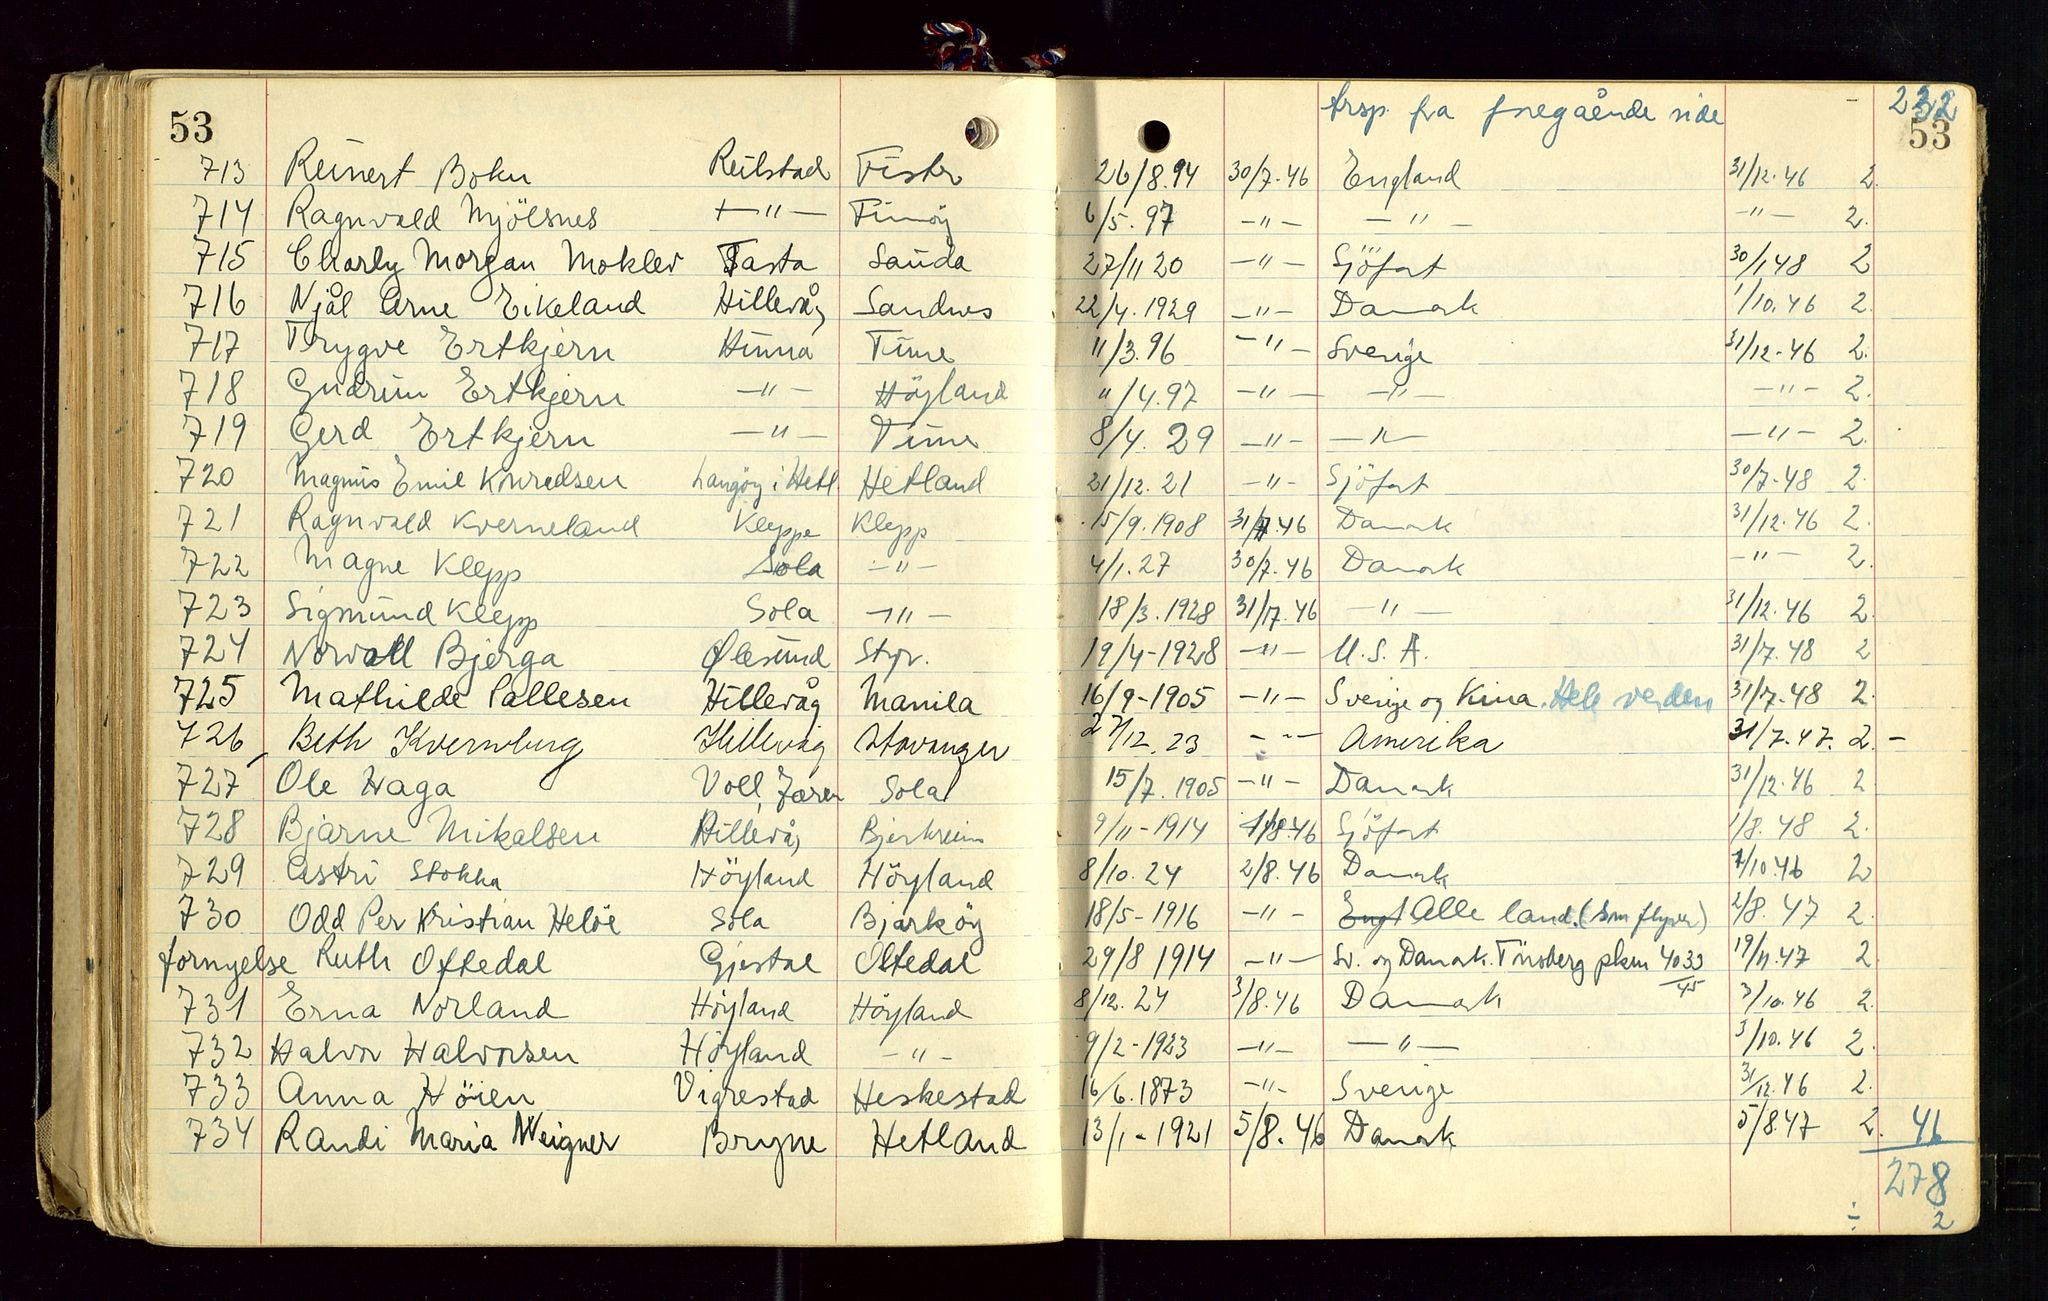 53
trsp. fra foregående side - 232
53
713 Reinert Bohn Reilstad Fister 26/8.94 30/7.46 England 31/12.46 2.
714 Ragnvald Mjölsnes —"— Finnöy 6/5.97 —"— —"— —"— 2.
715 Charly Morgan Mokleiv Tasta Sauda 27/11 20 —"— Sjöfart 30/1 48 2
716 Njål Arne Eikeland Hillevåg Sandnes 22/4.1929 —"— Danmark 1/10.46 2.
717 Trygve Ertkjern Hinna Time 11/3.96 —"— Sverige 31/12-46 2.
718 Gudrun Ertkjern —"— Höyland 11/4.97 —"— —"— —"— 2.
719 Gerd Ertkjern —"— Time 8/4.29 —"— —"— —"— 2.
720 Magnus Emil Konradsen Langöy i Hetl. Hetland 21/12.21 —"— Sjöfart 30/7-48 2.
721 Ragnvald Kverneland Kleppe Klepp 15/9.1908 31/7.46 Danmark 31/12.46 2.
722 Magne Klepp Sola —"— 4/1.27 30/7.46 Danmark —"— 2.
723 Sigmund Klepp Sola —"— 18/3.1928 31/7.46 —"— 31/12.46 2.
724 Norvall Bjerga Ølesund Styr. 19/4-1928 —"— U.S.A. 31/7.48 2
725 Mathilde Pallesen Hillevåg Manila 16/9-1905 —"— Sverige og Kina. Hele verden 31/7.48 2.
726 Beth Kvernberg Hillevåg Stavanger 27/12.23 —"— Amerika 31/7.47. 2. -
727 Ole Haga Voll, Jæren Sola 15/7.1905 —"— Danmark 31/12.46 2
728 Bjarne Mikalsen Hillevåg Bjerkreim 9/11-1914 1/8.46 Sjöfart 1/8.48 2.
729 Astri Stokka Höyland Höyland 8/10.24 2/8.46 Danmark 1/10.46 2
730 Odd Per Kristian Helöe Sola Bjarköy 18/5-1916 —"— Engl Alle land. (som flyver) 2/8.47 2.
fornyelse Ruth Oftedal Gjestal Oltedal 29/8 1914 —"— Sv. og Danmark. Tönsberg pkm 4033/45 19/11.47 2.
731 Erna Norland Höyland Höyland 8/12.24 3/8.46 Danmark 3/10.46 2.
732 Halvor Halvorsen Höyland —"— 9/2-1923 —"— —"— 3/10.46 2.
733 Anna Höien Vigrestad Heskestad 16/6.1873 —"— Sverige 31/12.46 2.
734 Randi Maria Weigner Bryne Hetland 13/1-1921 5/8.46 Danmark 5/8.47 2. 46
278
÷ 2